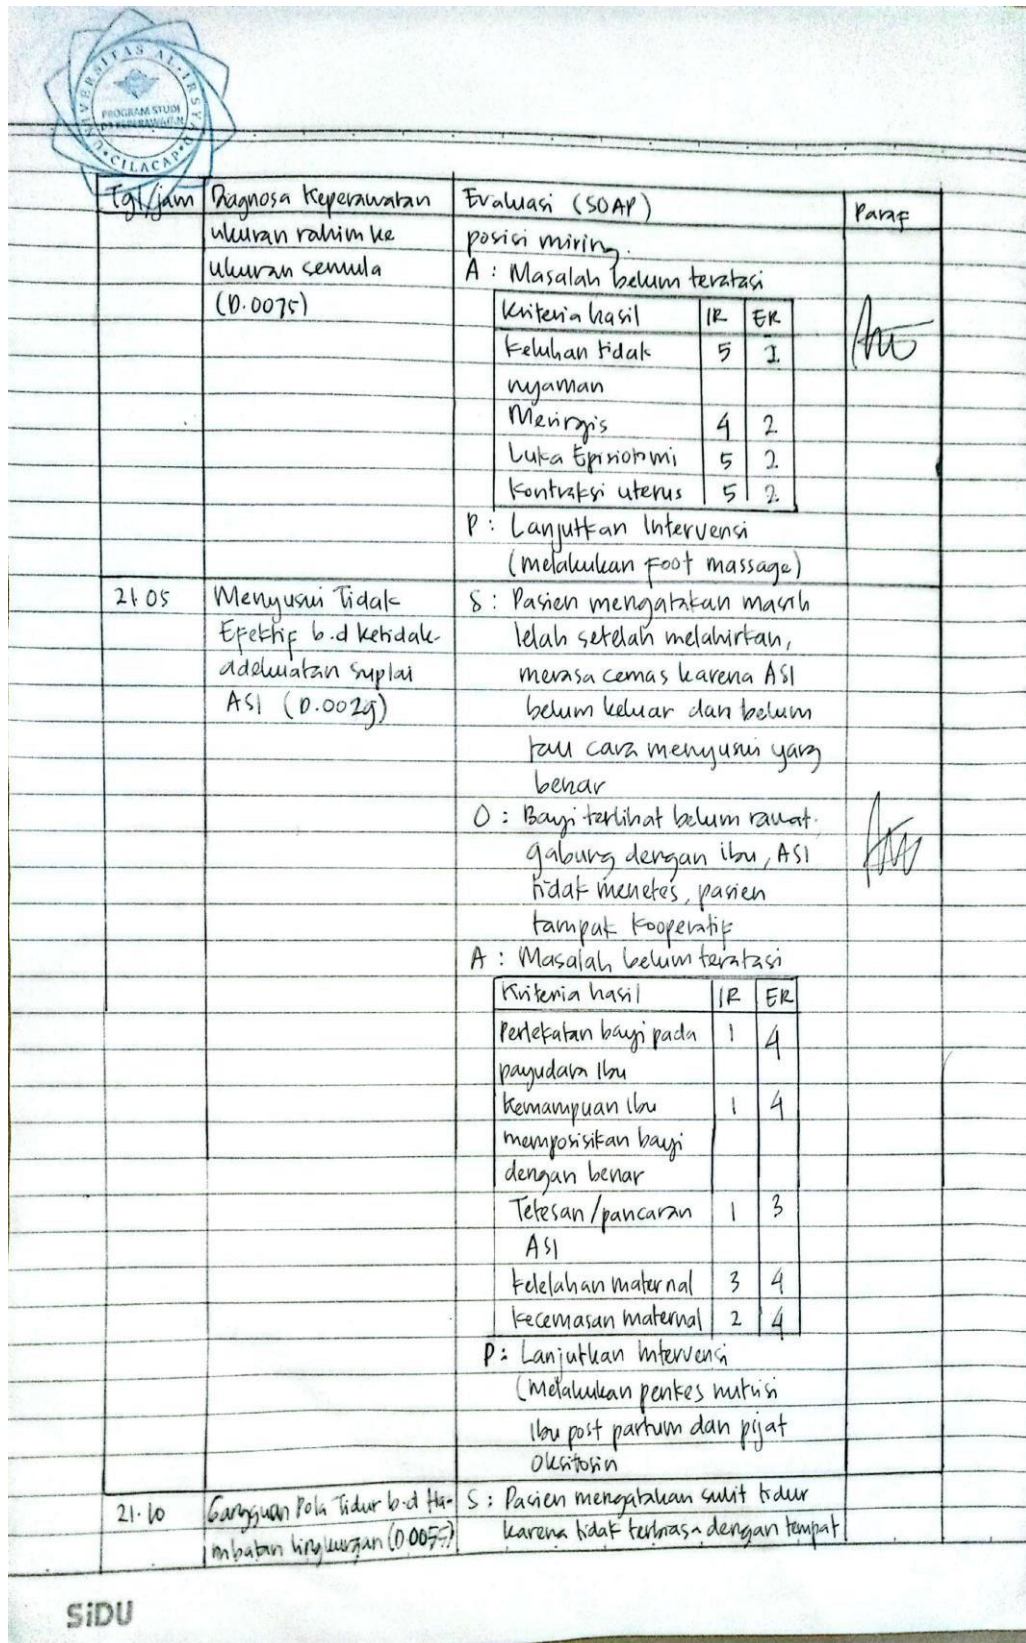 UNIVERSITAS AL-IRSYAD
PROGRAM STUDI
D3 KEPERAWATAN
CILACAP
Tgl/jam Diagnosa Keperawatan Evaluasi (SOAP) Paraf
ukuran rahim ke posisi miring.
ukuran semula A : Masalah belum teratasi
(D.0075) Kriteria hasil IR ER
Keluhan tidak 5 1
nyaman
Meringis 4 2
Luka Episiotomi 5 2
Kontraksi uterus 5 2
P : Lanjutkan Intervensi
(melakukan Foot massage)
21.05 Menyusui Tidak S : Pasien mengatakan masih
Efektif b.d ketidak- lelah setelah melahirkan,
adekuatan suplai merasa cemas karena ASI
ASI (D.0029) belum keluar dan belum
tau cara menyusui yang
benar
O : Bayi terlihat belum rawat
gabung dengan ibu, ASI
tidak menetes, pasien
tampak kooperatif
A : Masalah belum teratasi
Kriteria hasil IR ER
Perlekatan bayi pada 1 4
payudara Ibu
Kemampuan Ibu 1 4
memposisikan bayi
dengan benar
Tetesan/pancaran 1 3
ASI
Kelelahan maternal 3 4
Kecemasan maternal 2 4
P : Lanjutkan Intervensi
(melakukan penkes nutrisi
Ibu post partum dan pijat
Oksitosin
21.10 Gangguan Pola Tidur b.d Ha- S : Pasien mengatakan sulit tidur
mbatan lingkungan (D.0055) karena tidak terbiasa dengan tempat
SiDU